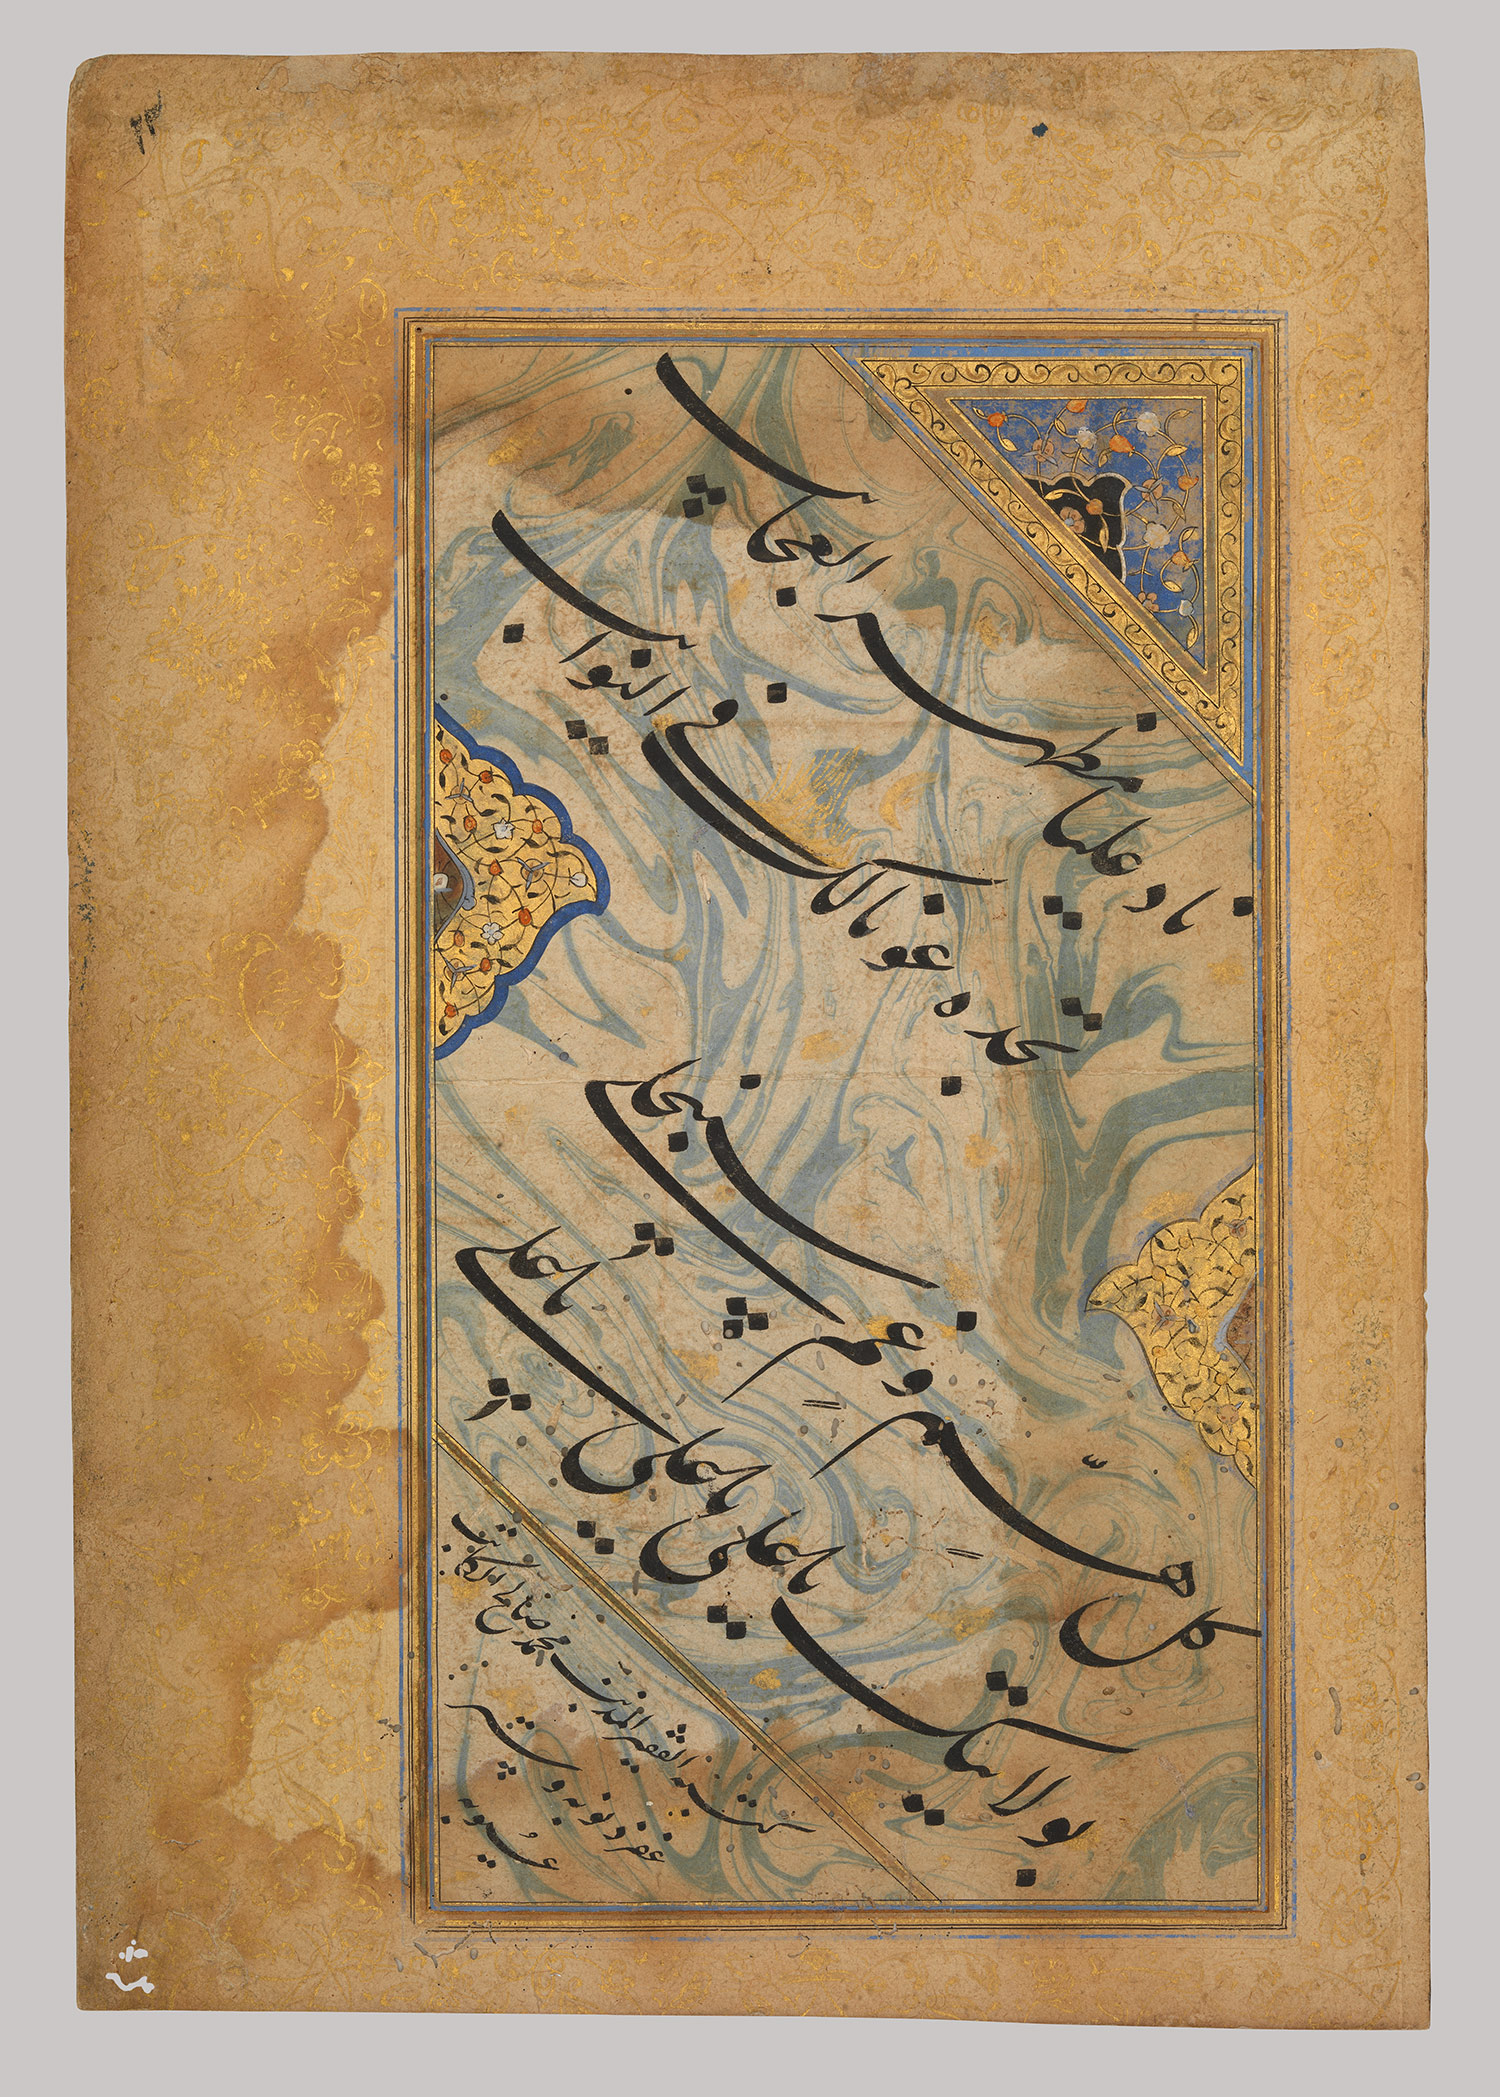 ناد علیا مظهر العجائب
تجده عونا لک فی النوائب
کل همّ وغم سینجلی
بولایتک یا علی یا علی یا علی
کتبه الفقیر المذنب محمد صالح الکاتب
غفر ذنوبه وستر
عیوبه